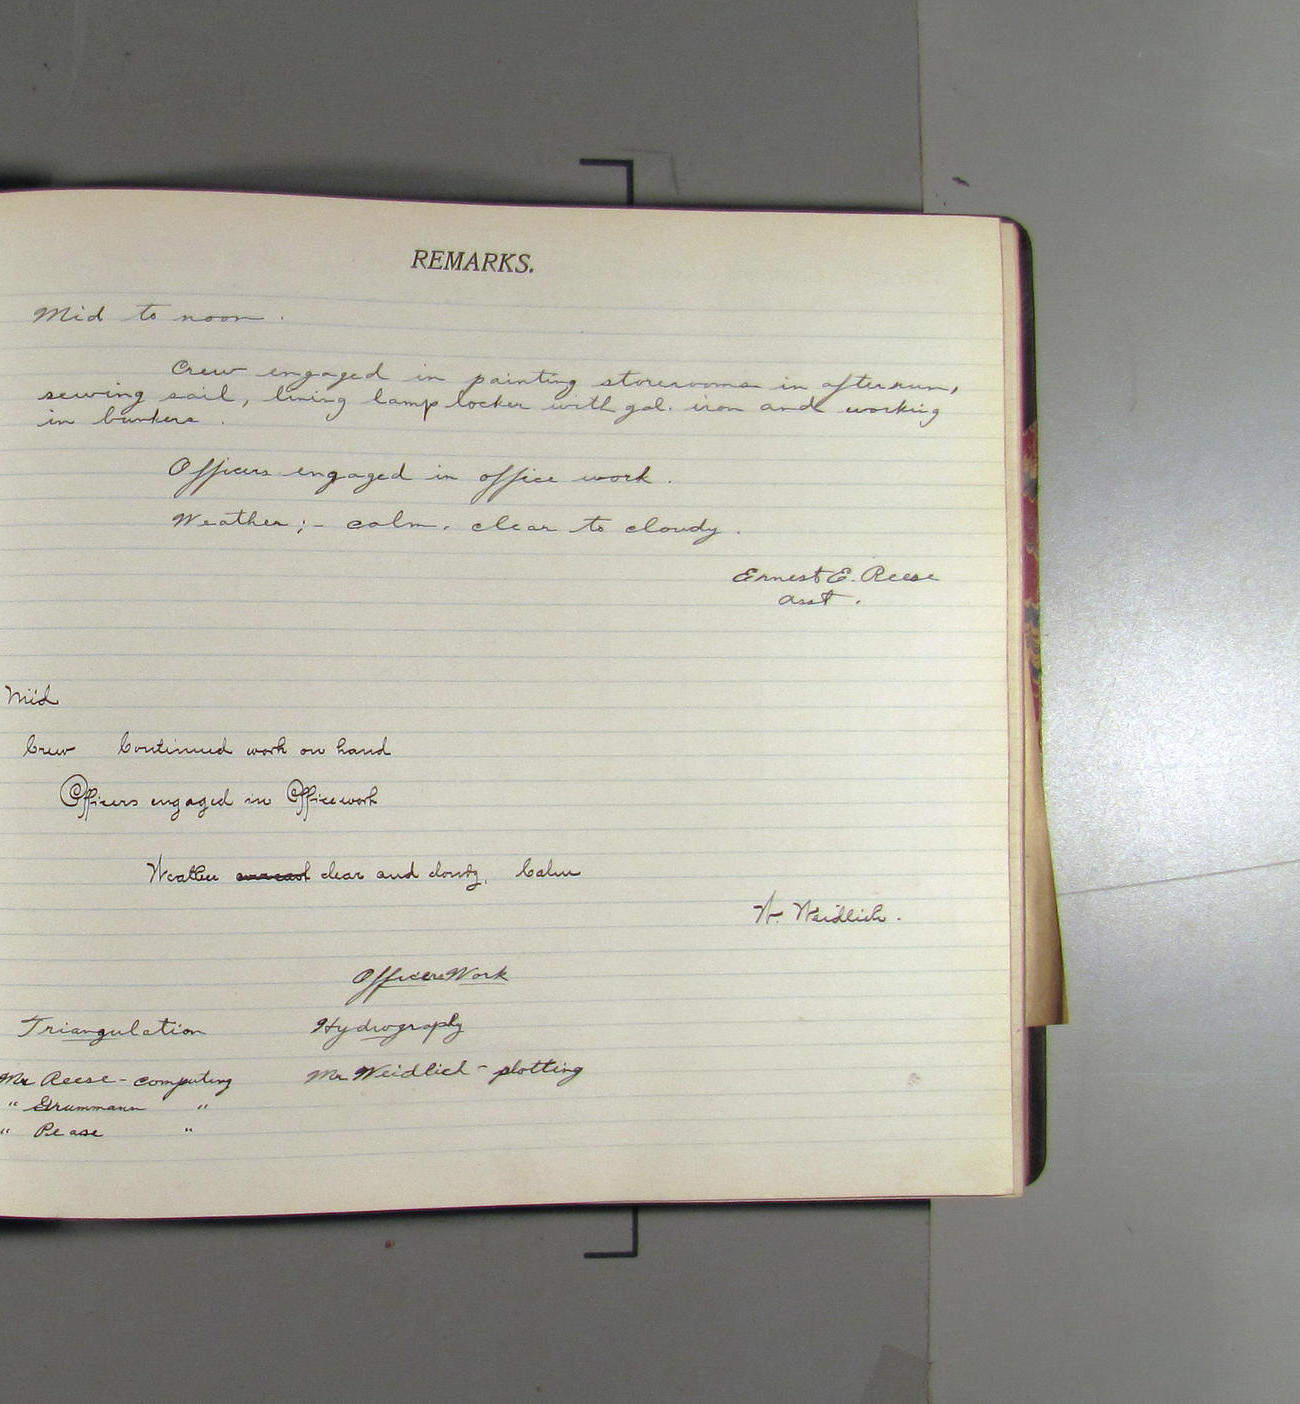 REMARKS.
Mid to noon.
Crew engaged in painting storerooms in
sewing sail, lining lamp locker with gal. iron and working
in bunkers.
Officers engaged in office work.
Weather:- calm. clear to cloudy.
Ernest E. Reese
Asst.
Mid
Crew Continued work on hand
Officers engaged in Office work
Weather clear and cloudy, Calm
W. Weidlich.
Officers Work
Triangulation Hydrography
Mr Reese - computing Mr Weidlich - plotting
" Grummann "
" Pease "